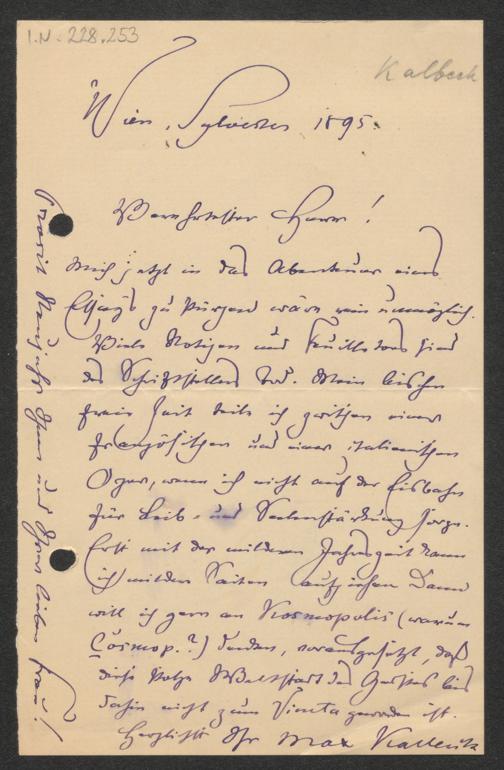 I.N. 228.253
Kalbeck
Wien, Sylvester 1895.
Verehrtester Herr!
Mich jetzt in das Abenteuer eines
Essays zu stürzen wäre mir unmöglich.
Viele Notizen und Feuilletons sind
des Schriftstellers Tod. Mein bischen
freie Zeit teile ich zwischen einer
französischen und einer italienischen
Oper, wenn ich nicht auf der Eisbahn
für Leib- und Seelenstärkung sorge.
Erst mit der milderen Jahreszeit kann
ich mildere Saiten aufziehen. Dann
will ich gern an Kosmopolis (warum
Cosmop.?) denken, vorausgesetzt, daß
diese stolze Weltstadt des Geistes bis
dahin nicht zum Vineta geworden ist.
Herzlichst Ihr Max Kalbeck
Prosit Neujahr Ihnen und Ihrer lieben Frau!